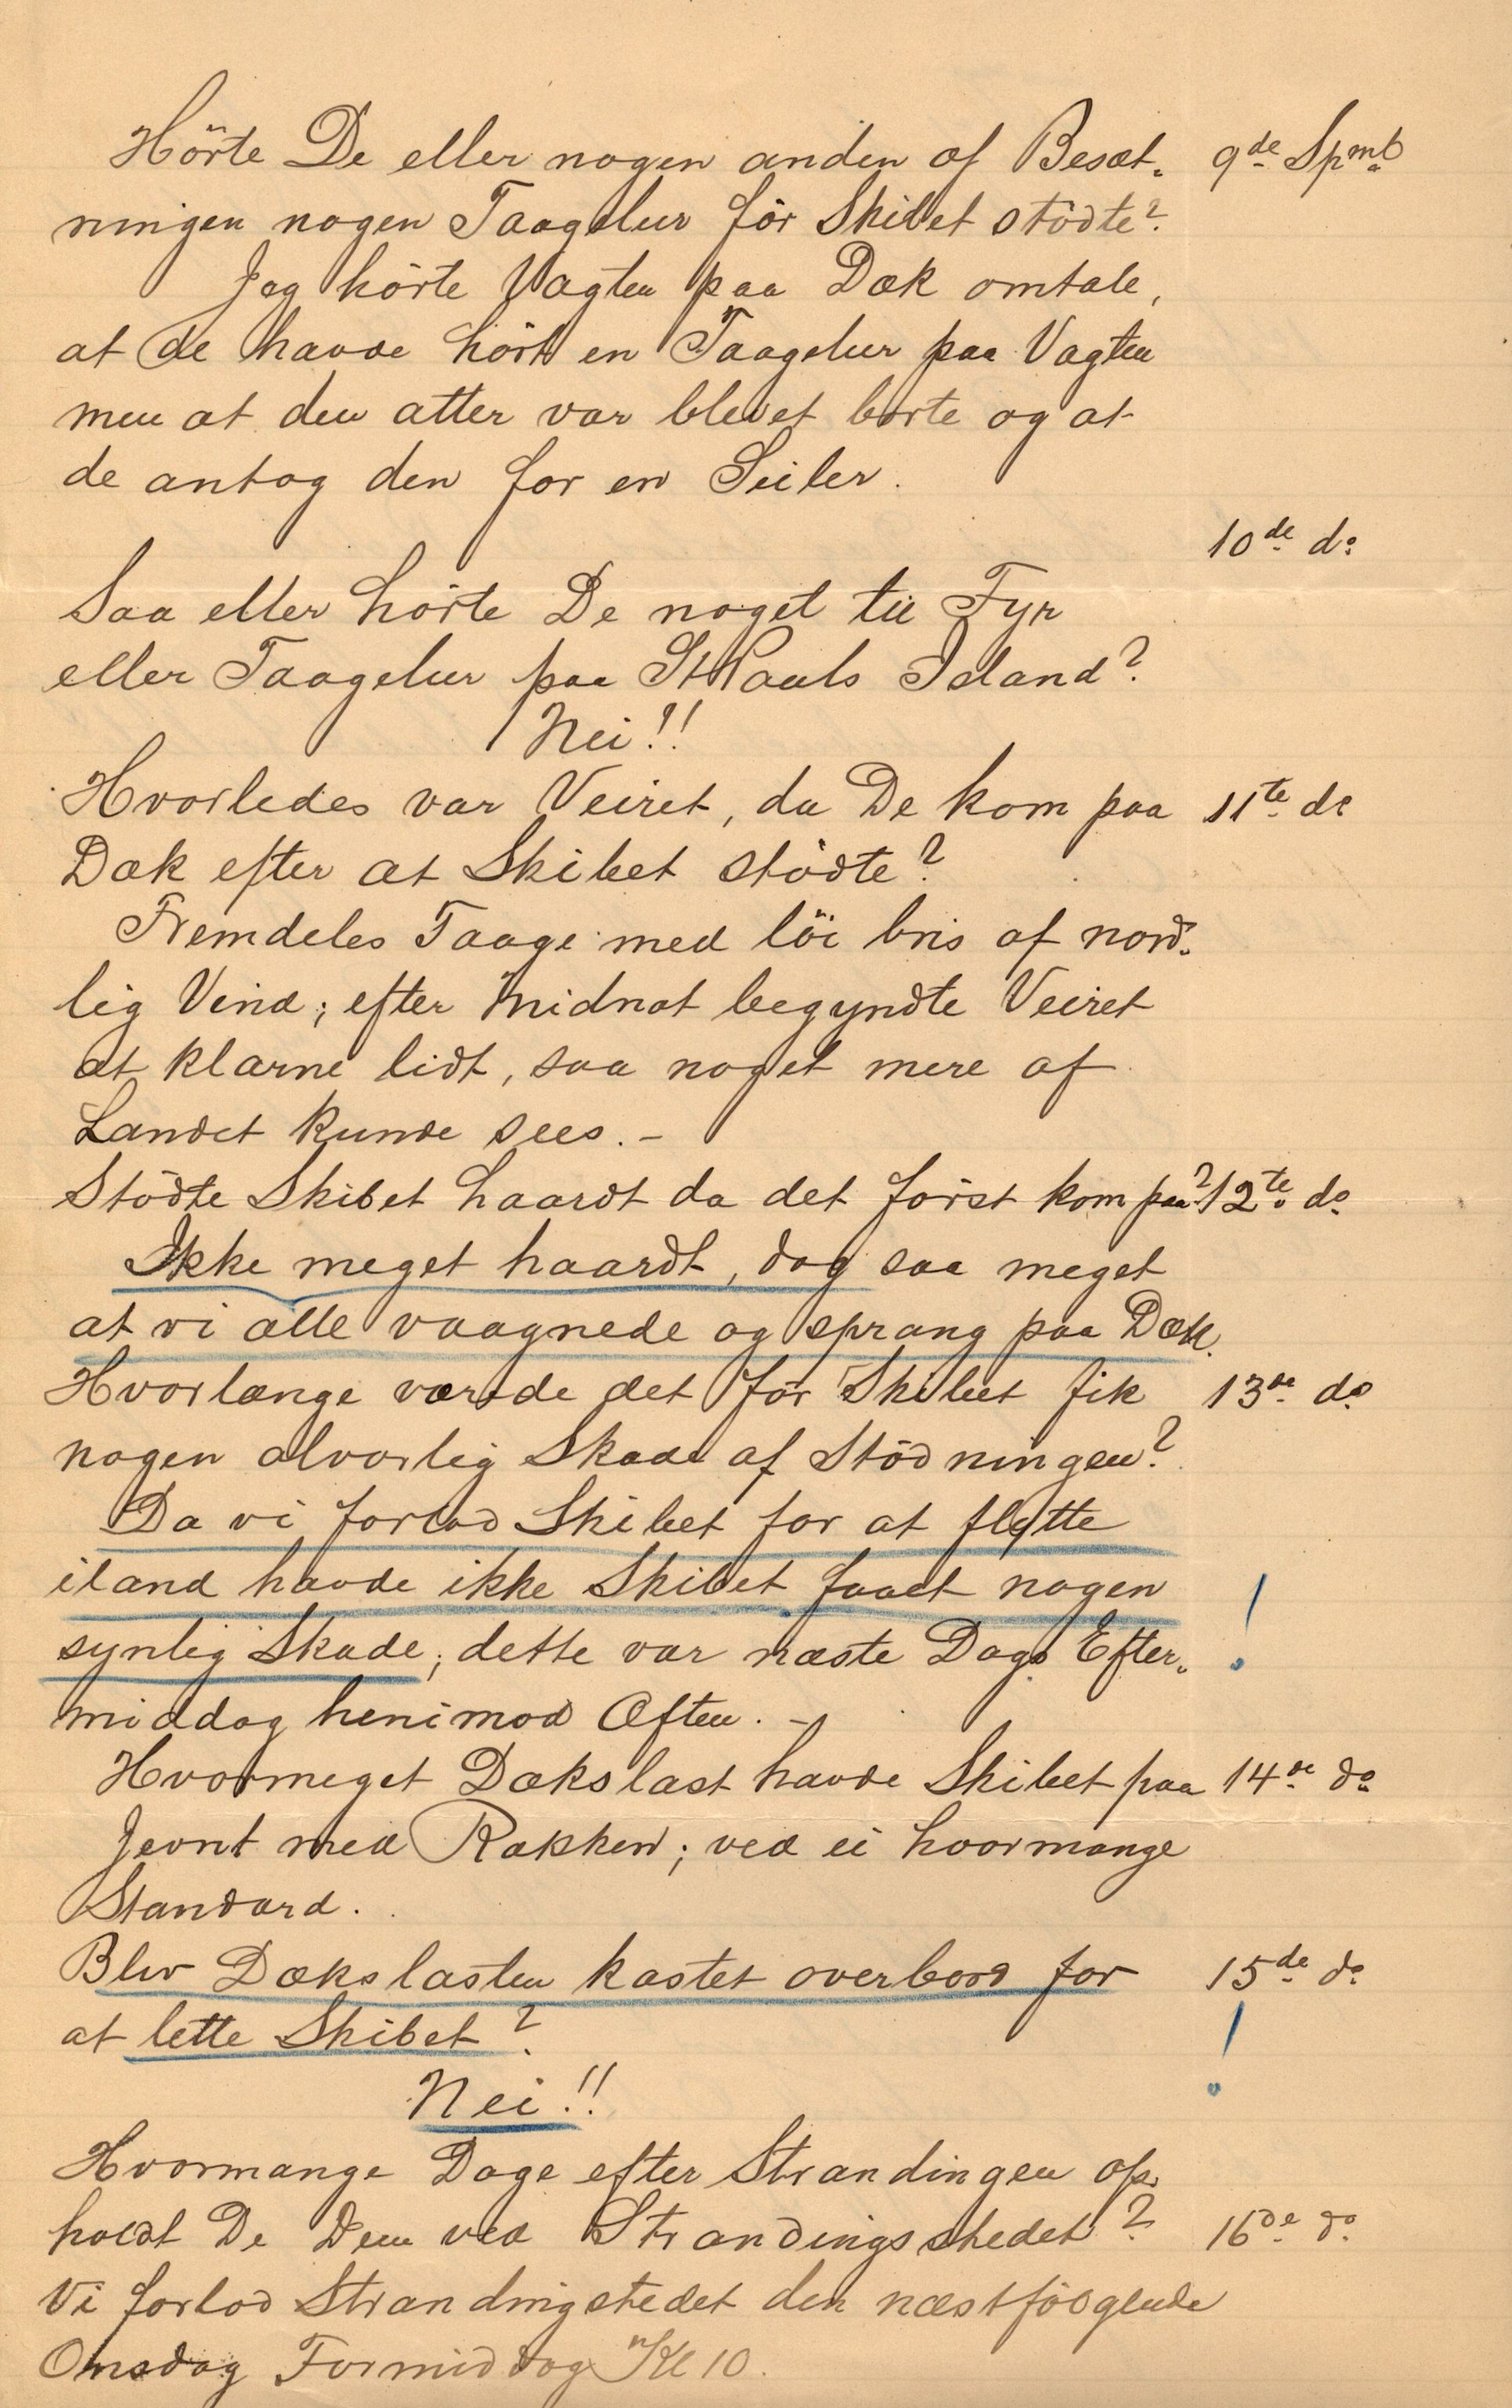 Hörte De eller nogen anden af Besæt- 9de Spmb
ningen nogen Taagelur för Skibet stödte?
Jeg hörte Vagten paa Dæk omtale,
at de havde hört en Taagelur paa Vagten
men at den atter var blevet borte og at
de antog den for en Seiler.
10de do
Saa eller hörte De noget til Fyr
eller Taagelur paa St Pauls Island?
Nei!!
Hvorledes var Veiret, da De kom paa 11te do
Dæk efter at Skibet stödte?
Fremdeles Taage med löi bris af nord-
lig Vind; efter Midnat begyndte Veiret
at klarne lidt, saa noget mere af
Landet kunde sees. -
Stödte Skibet haardt da det först kom paa? 12te do
Ikke meget haardt, dog saa meget
at vi alle vaagnede og sprang paa Dæk.
Hvorlænge varede det för Skibet fik 13de do
nogen alvorlig Skade af Stödningen?
Da vi forlod Skibet for at flytte
iland havde ikke Skibet faaet nogen !
synlig Skade; dette var næste Dags Efter-
middag henimod Aften. -
Hvormeget Dækslast havde Skibet paa 14de do
Jevnt med Rækken; ved ei hvormange
Standard.
Blev Dækslasten kastet overbord for 15de do
at lette Skibet? !
Nei!!
Hvormange Dage efter Strandingen op-
holdt De Dem ved Strandingsstedet? 16de do
Vi forlod Strandingstedet den næstfölgende
Onsdag Formiddag Kl 10.